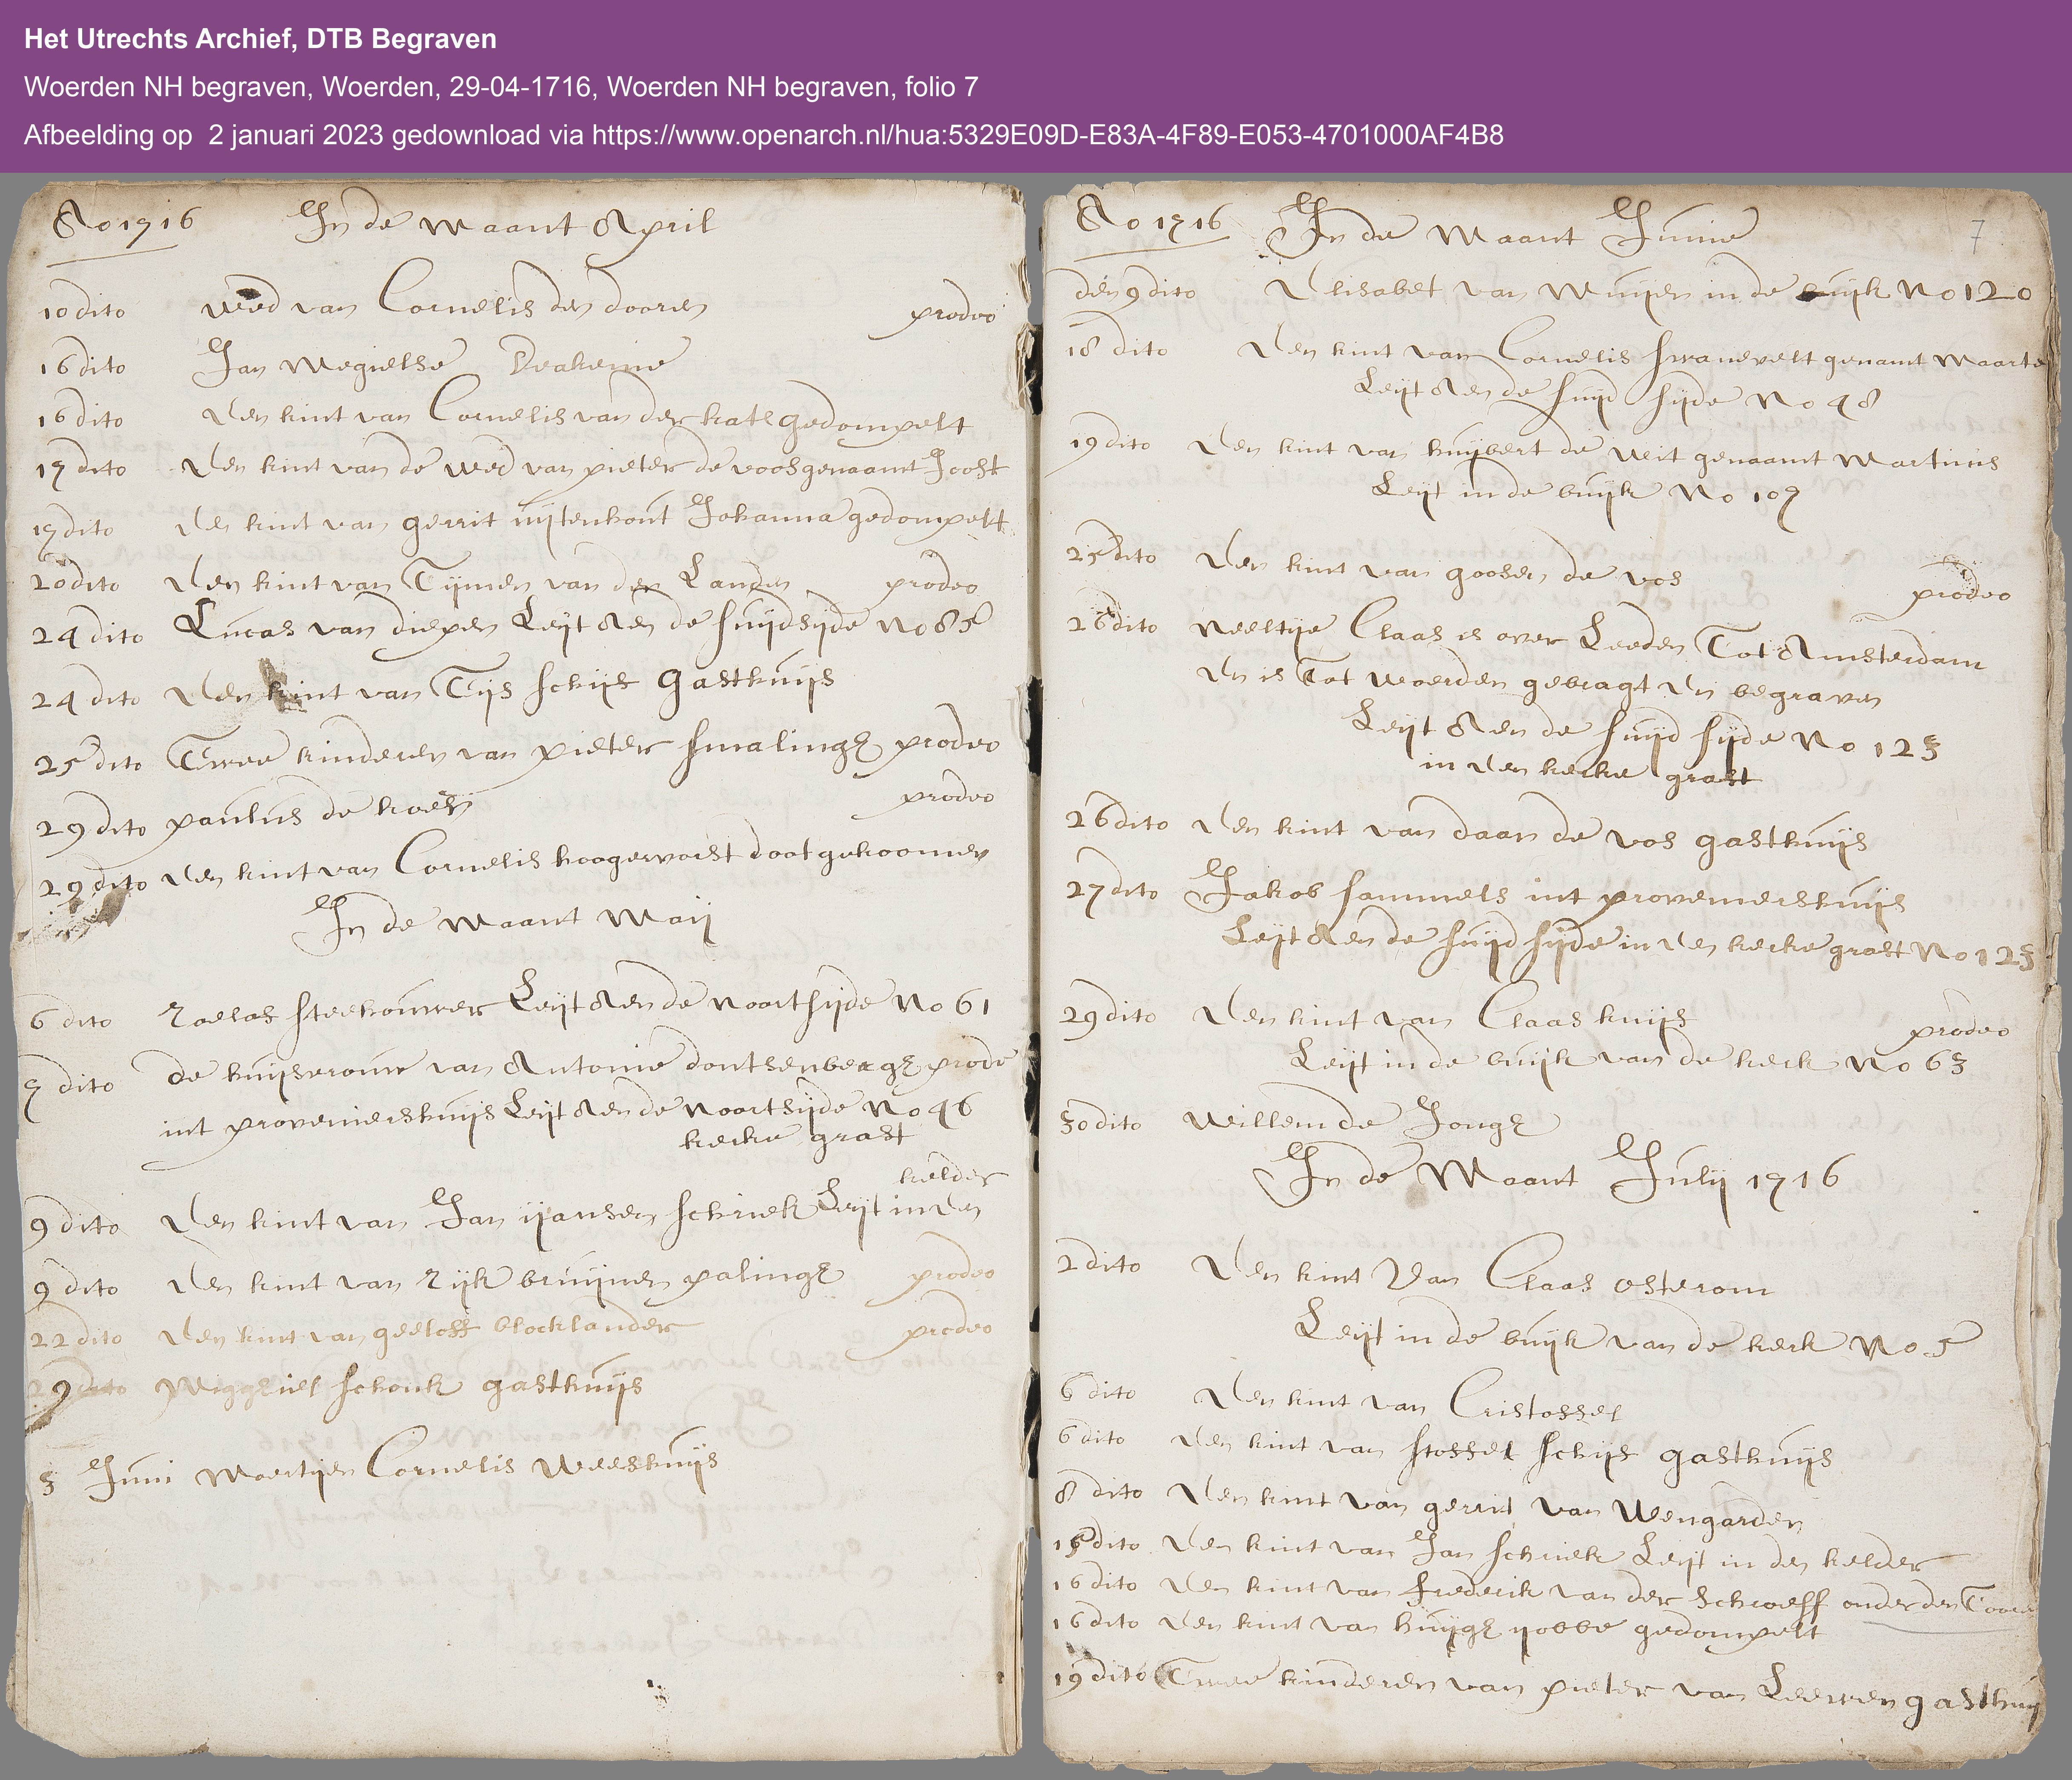 Het Utrechts Archief, DTB Begraven
Woerden NH begraven, Woerden, 29-04-1716, Woerden NH begraven, folio 7
Afbeelding op 2 januari 2023 gedownload via https://www.openarch.nl/hua:5329E09D-E83A-4F89-E053-4701000AF4B8
Ao 1716 In de maant April
10 dito wed van Cornelis den dooren prodeo
16 dito Jan Megielse
16 dito Een kint van Cornelis van der kate gedompelt
17 dito Een kint van de wed van pieter de voos genaamt Joost
17 dito Een kint van gerrit uijtenhout Johanna gedompelt
20 dito Een kint van Tijmen van der Landen prodeo
24 dito Lucas van diepen Leijt Aen de suijdsijde No 85
24 dito Een kint van Tijs schijf gasthuijs
25 dito Twee kinderen van pieter smalinge prodeo
29 dito paulus de koeh prodeo
29 dito Een kint van Cornelis hoogervorst doot gekoomen
In de maant Maij
6 dito Roelof steehouwer Leijt Aen de noortsijde No 61
7 dito de huijsvrouw van Antonie dontsenberge prode
int proveniershuijs Leijt Aen de noortsijde No 46
kerke graft
kelder
9 dito Een kint van Jan ijansen schriek Leijt in Den
9 dito Een kint van Rijk bruijnen palinge prodeo
22 dito Een kint van geeloff blocklander prodeo
29 dito Miggiel schouk gasthuijs
3 Juni Maertijen Cornelis Weeshuijs
Ao 1716 In de Maant Junie 7
den 9 dito Elisabet van Muijen in de buijk No 120
18 dito Een kint van Cornelis swanevelt genamt Maarte
Leijt Aen de suijd sijde No 48
19 dito Een kint van huijbert de wit genaamt Martinus
Leijt in de buijk No 107
25 dito Een kint van goosen de vos prodeo
26 dito neeltije Claas is over Leeden Tot Amsterdam
En is Tot woerden gebragt En begraven
Leijt Aen de suijd sijde No 123
in Een kerke graft
26 dito Een kint van daan de vos gasthuijs
27 dito Jakob sammels int proveniershuijs
Leijt Aen de suijd sijde in Een kerke graft No 123
29 dito Een kint van Claas huijs prodeo
Leijt in de buijk van de kerk No 63
30 dito Willem de Jonge
In de Maant Julij 1716
2 dito Een kint Van Claas osterom
Leijt in de buijk van de kerk No 5
6 dito Een kint van Cristoffel
6 dito Een kint van stoffel schijf gasthuijs
8 dito Een kint van gerrit van Wengarden
15 dito Een kint van Jan schriek Leijt in den kelder
16 dito Een kint van frederik van der Schroeff onder den Toore
16 dito Een kint van huijge ijobbe gedompelt
19 dito Twee kinderen van pieter van Leewen gasthuij